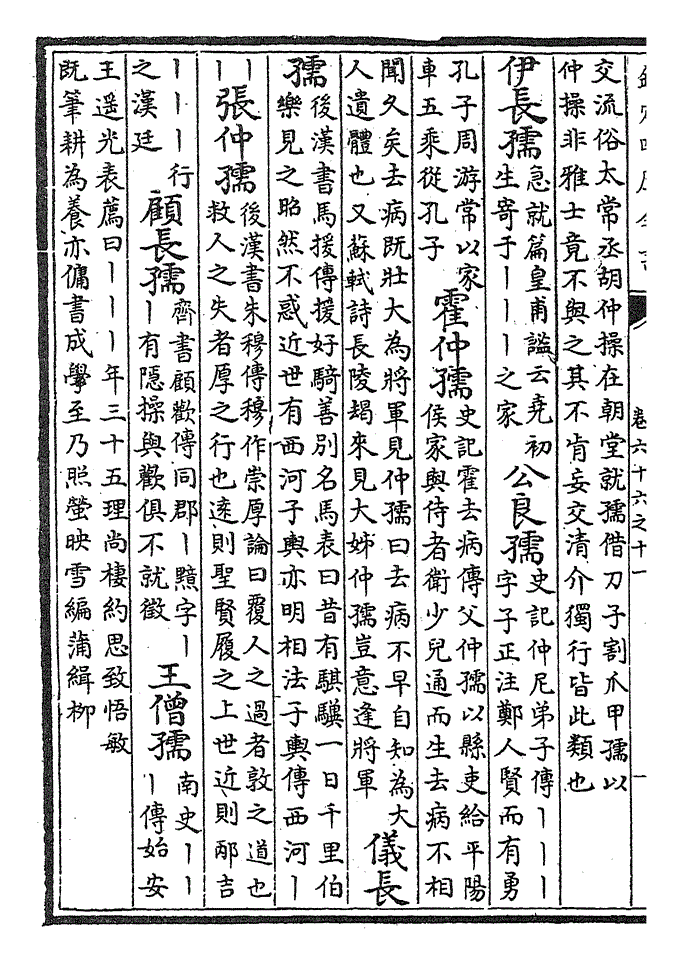 欽定四庫全書
卷六十六之十一
一
交流俗太常丞胡仲操在朝堂就孺借刀子割爪甲孺以
仲操非雅士竟不與之其不肯妄交清介獨行皆此類也
伊長孺
急就篇皇甫謐云堯初
生寄于丨丨丨之家
公良孺
史記仲尼弟子傳丨丨丨
字子正注鄭人賢而有勇
孔子周游常以家
車五乘從孔子
霍仲孺
史記霍去病傳父仲孺以縣吏給平陽
侯家與侍者衛少兒通而生去病不相
聞久矣去病既壯大為將軍見仲孺曰去病不早自知為大
人遺體也又蘇軾詩長陵朅來見大姊仲孺豈意逢將軍
儀長
孺
後漢書馬援傳援好騎善別名馬表曰昔有騏驥一日千里伯
樂見之昭然不惑近世有西河子輿亦明相法子輿傳西河丨
丨
張仲孺
後漢書朱穆傳穆作崇厚論曰覆人之過者敦之道也
救人之失者厚之行也遠則聖賢履之上世近則邴吉
丨丨丨行
之漢廷
顧長孺
齊書顧歡傳同郡丨黯字丨
丨有隱操與歡俱不就徵
王僧孺
南史丨丨
丨傳始安
王遥光表薦曰丨丨丨年三十五理尚棲約思致悟敏
既筆耕為養亦傭書成學至乃照螢映雪編蒲緝柳